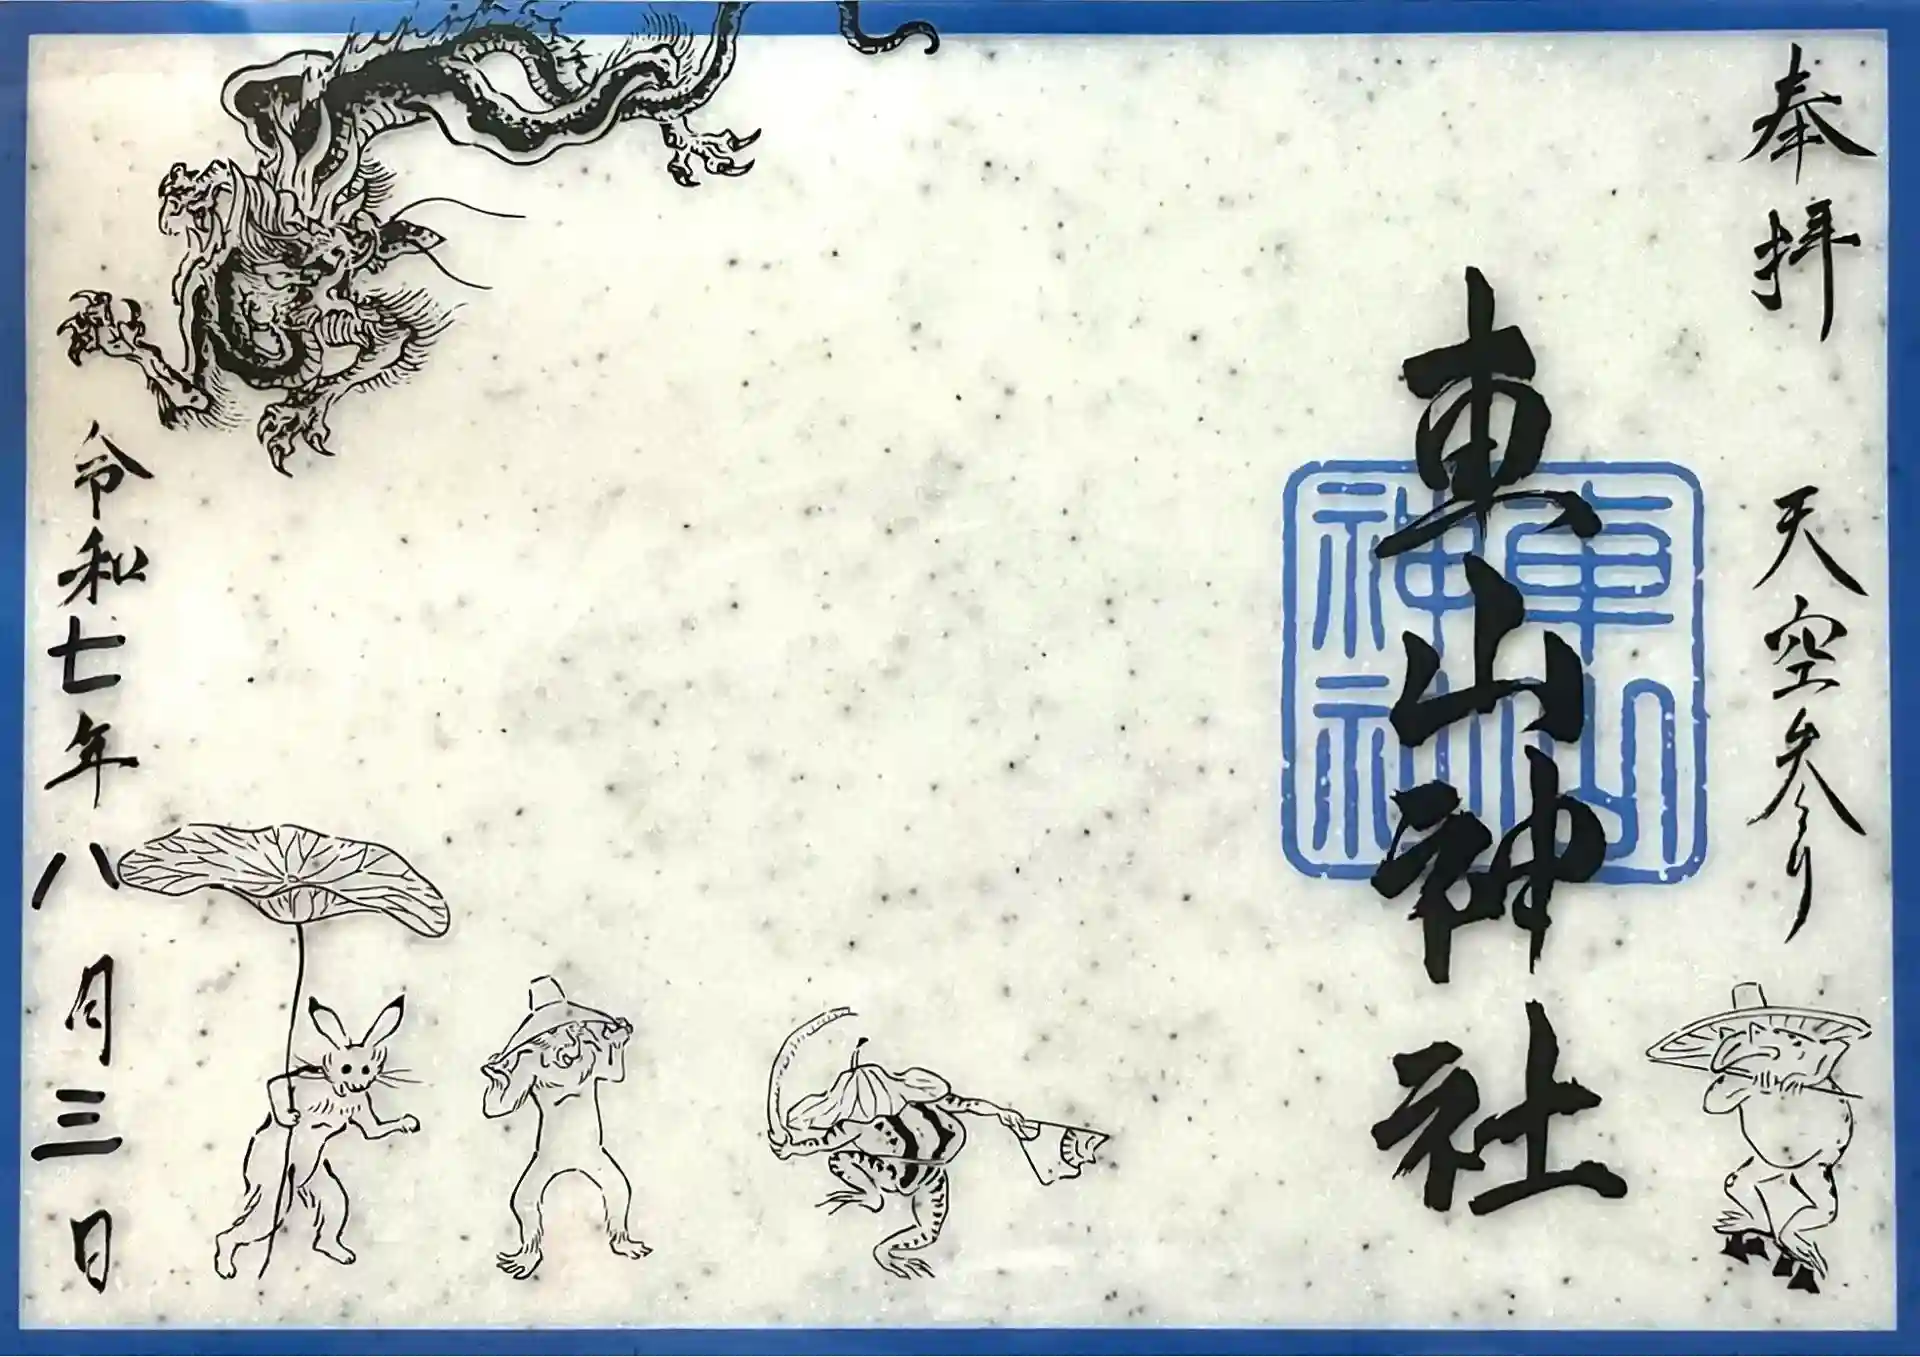 奉拝 天空参り
東山神社
東山
神社
令和七年八月三日